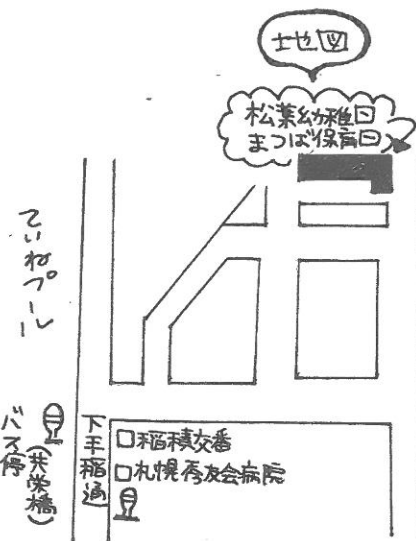 地図
松葉幼稚園
まつば保育園
ていねプール
バス停
(共栄橋)
下手稲通
稲積交番
札幌秀友会病院